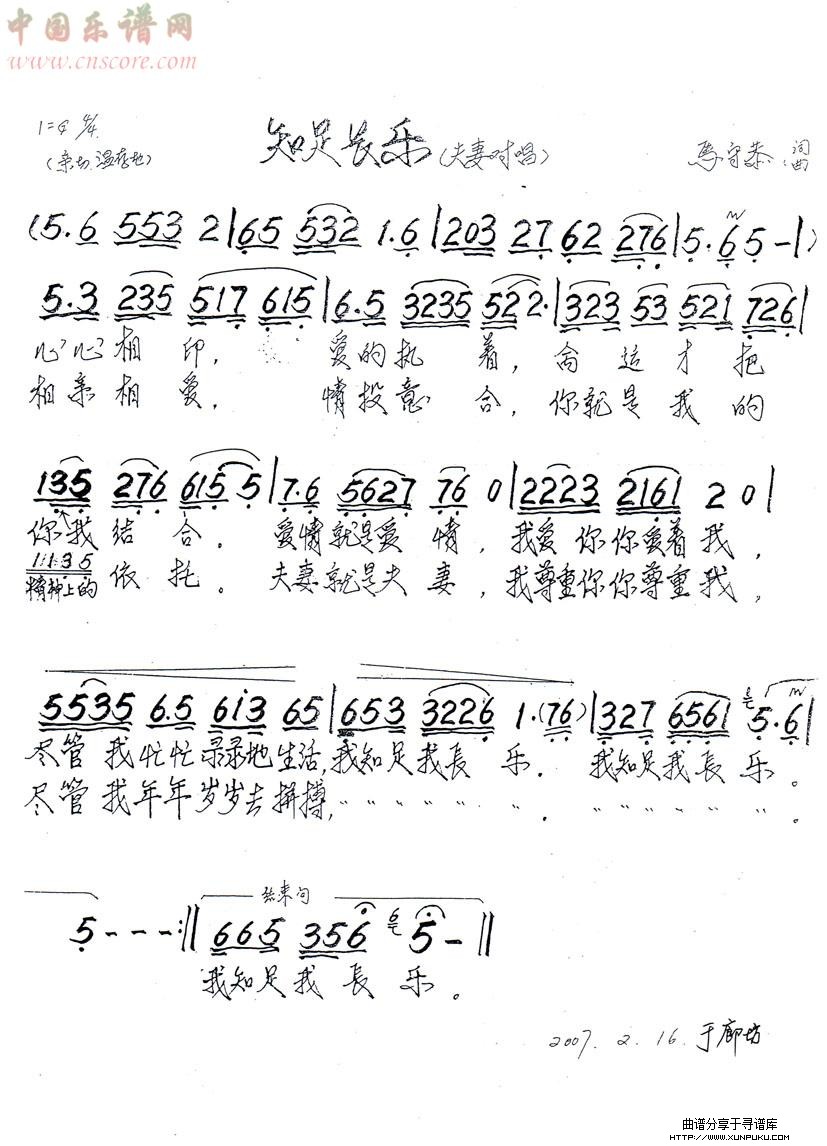 中国乐谱网
www.cnscore.com
1=G 4/4
知足長乐(夫妻对唱)
馬守泰 词曲
(亲切 温存地)
(5.6 553 2|65 532 1.6|203 27 62 276|5.6 5 -|)
5.3 235 517 615|6.5 3235 522.|323 53 521 726|
心心相印, 爱的执着,命运才把
相亲相爱, 情投意合,你就是我的
135 276 615 5|7.6 5627 76 0|2223 2161 2 0|
你我结合。爱情就是爱情,我爱你你爱着我,
1135
精神上的依托。夫妻就是夫妻,我尊重你你尊重我,
5535 6.5 6i3 65|653 3226 1.(76)|327 6561 5.6|
尽管我忙忙录录地生活,我知足我長乐. 我知足我長乐。
尽管我年年岁岁去拼搏, " " " " " " . " " " " " " 。
5 - - - :|| 结束句
665 356 6 5 - ||
我知足我長乐。
2007. 2. 16. 于廊坊
曲谱分享于寻谱库
HTTP://WWW.XUNPUKU.COM